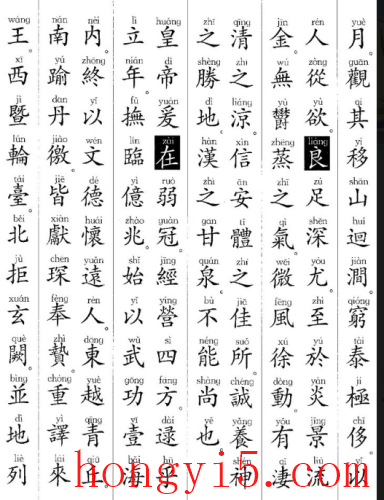 月。觀其移山迴澗。窮泰極侈。以
人從欲。良足深尤。至於炎景流
金。無鬱蒸之氣。微風徐動。有淒
清之涼。信安體之佳所。誠養神
之勝地。漢之甘泉。不能尚也。
皇帝爰在弱冠。經營四方。逮乎
立年。撫臨億兆。始以武功壹海
內。終以文德懷遠人。東越青丘。
南踰丹徼。皆獻琛奉贄。重譯來
王。西暨輪臺。北拒玄闕。並地列
hongyi5.com